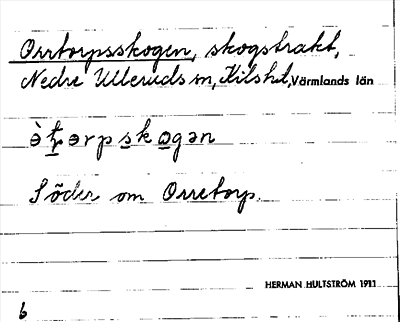 Orrtorpsskogen, skogstrakt,
Nedre Ulleruds sn, Kils hd, Värmlands län
Söder om Orretorp.
HERMAN HULTSTRÖM 1911
6